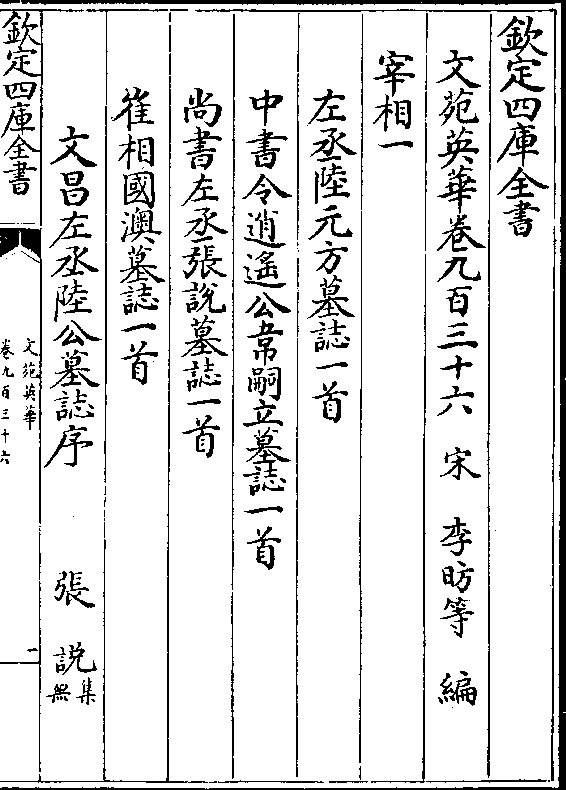 欽定四庫全書
文苑英華卷九百三十六　宋　李昉等　編
宰相一
左丞陸元方墓誌一首
中書令逍遙公韋嗣立墓誌一首
尚書左丞張說墓誌一首
崔相國澳墓誌一首
文昌左丞陸公墓誌序　張說集無
欽定四庫全書
文苑英華
卷九百三十六
一